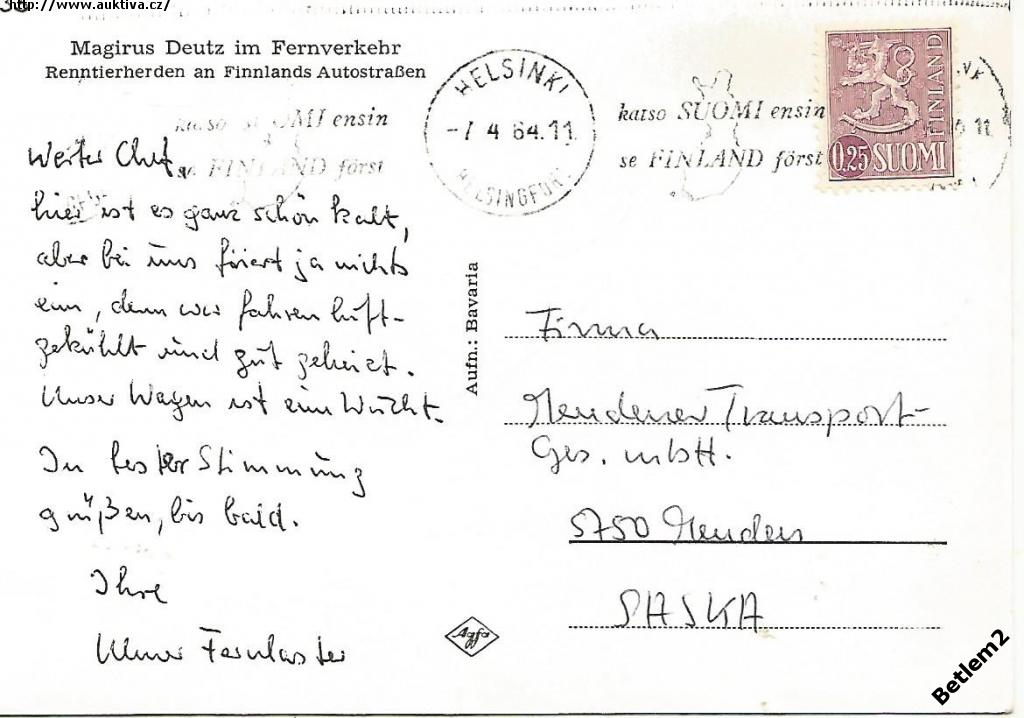 http://www.auktiva.cz/
Magirus Deutz im Fernverkehr
Renntierherden an Finnlands Autostraßen
katso SUOMI ensin
se FINLAND först
HELSINKI
-7.4 64.11
HELSINGFORS
katso SUOMI ensin
se FINLAND först
FINLAND
0,25 SUOMI
11
Werter Chef,
hier ist es ganz schön kalt,
aber bei uns friert ja nichts
ein, denn wir fahren luft-
gekühlt und gut geheizt.
Unser Wagen ist eine Wucht.
In bester Stimmung
grüßen, bis bald.
Ihre
Ulmer Fernlaster
Aufn.: Bavaria
Agfa
Firma
Mendener Transport-
Ges. mbH.
5750 Menden
Betlem2